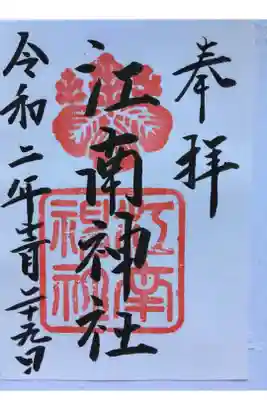 奉拝
江南神社
令和二年 月二十九日
江南
神社